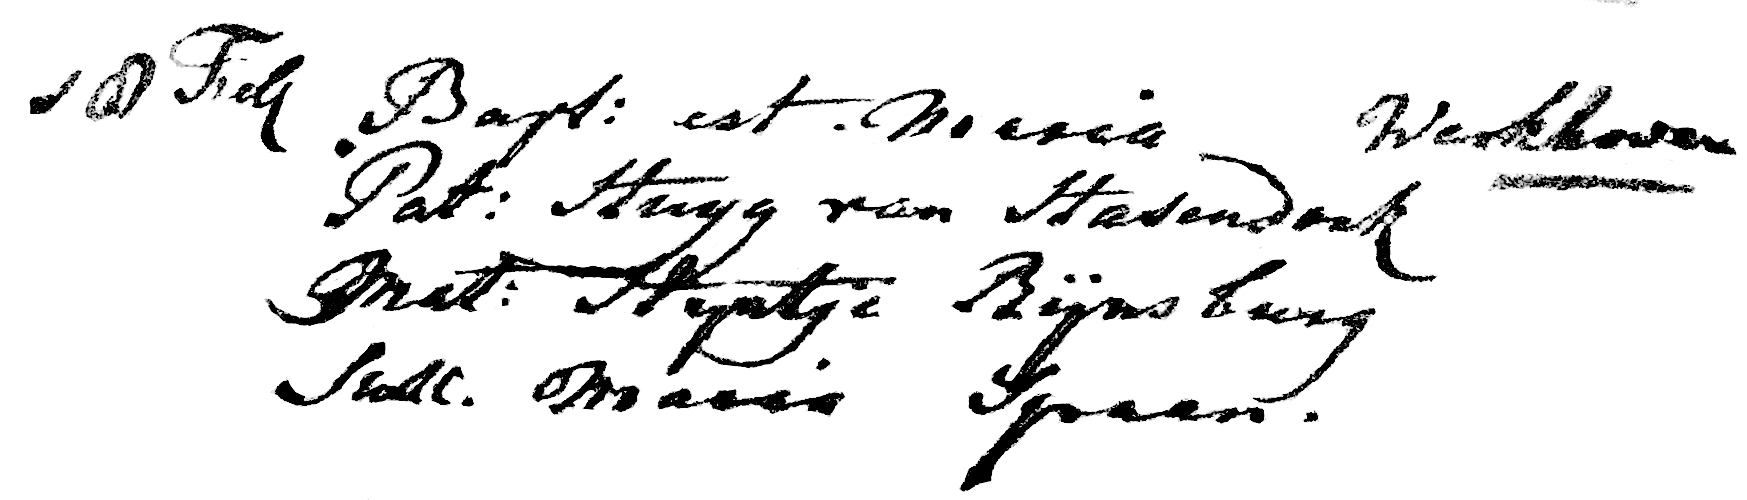 18 Feb Bapt: est. Maria Werkhoven
Pat: Huyg van Hasendonk
Mat: Hyntje Rijnsburg
Susc. Maria Spaan.